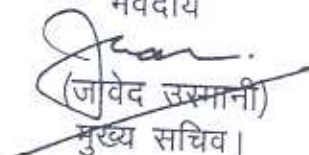 भवदीय
(जावेद उस्मानी)
मुख्य सचिव।